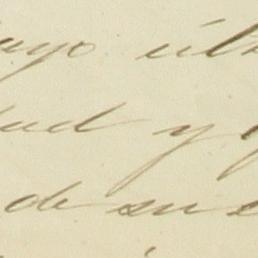 ayo últ
dad y
de su s